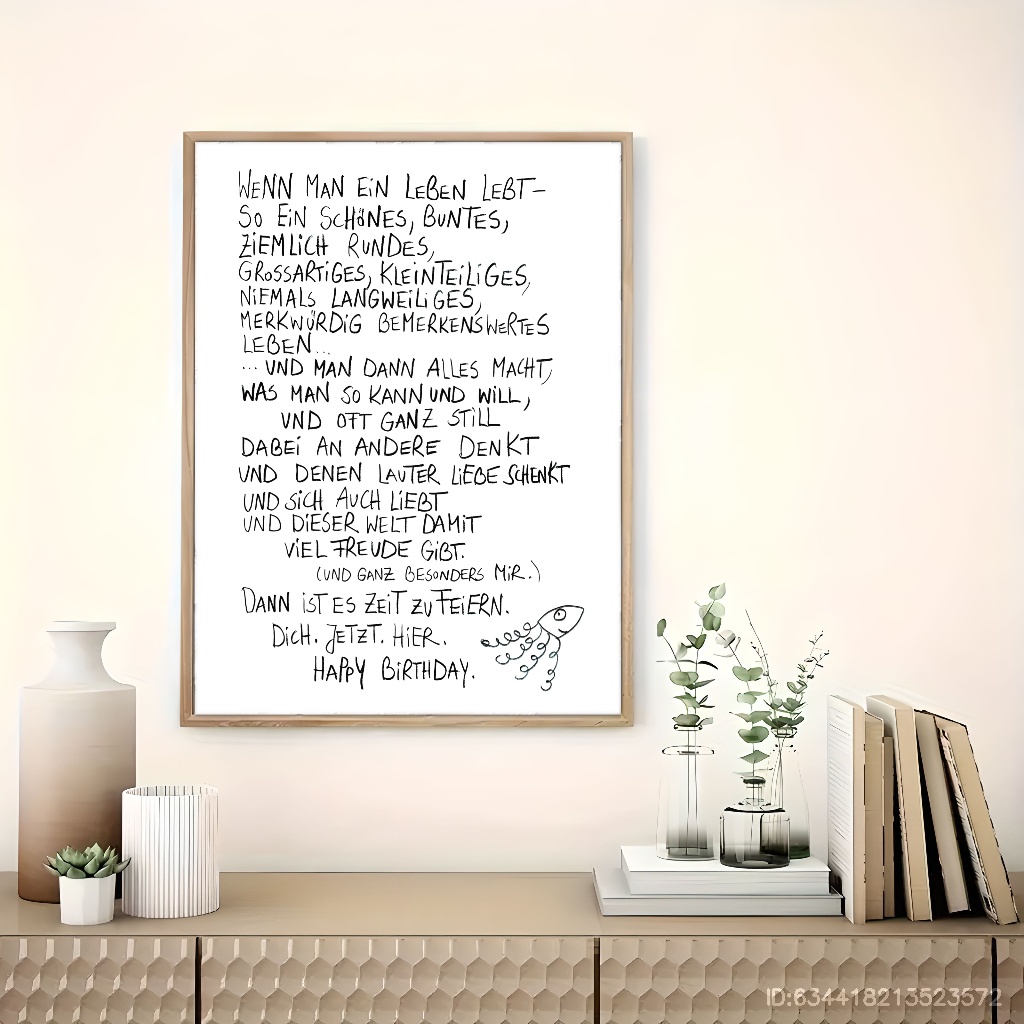 WENN MAN EIN LEBEN LEBT–
SO EIN SCHÖNES, BUNTES,
ZIEMLICH RUNDES,
GROSSARTIGES, KLEINTEILIGES,
NIEMALS LANGWEILIGES,
MERKWÜRDIG BEMERKENSWERTES
LEBEN...
... UND MAN DANN ALLES MACHT,
WAS MAN SO KANN UND WILL,
UND OFT GANZ STILL
DABEI AN ANDERE DENKT
UND DENEN LAUTER LIEBE SCHENKT
UND SICH AUCH LIEBT
UND DIESER WELT DAMIT
VIEL FREUDE GIBT.
(UND GANZ BESONDERS MIR.)
DANN IST ES ZEIT ZU FEIERN.
DICH. JETZT. HIER.
HAPPY BIRTHDAY.
ID:634418213523572